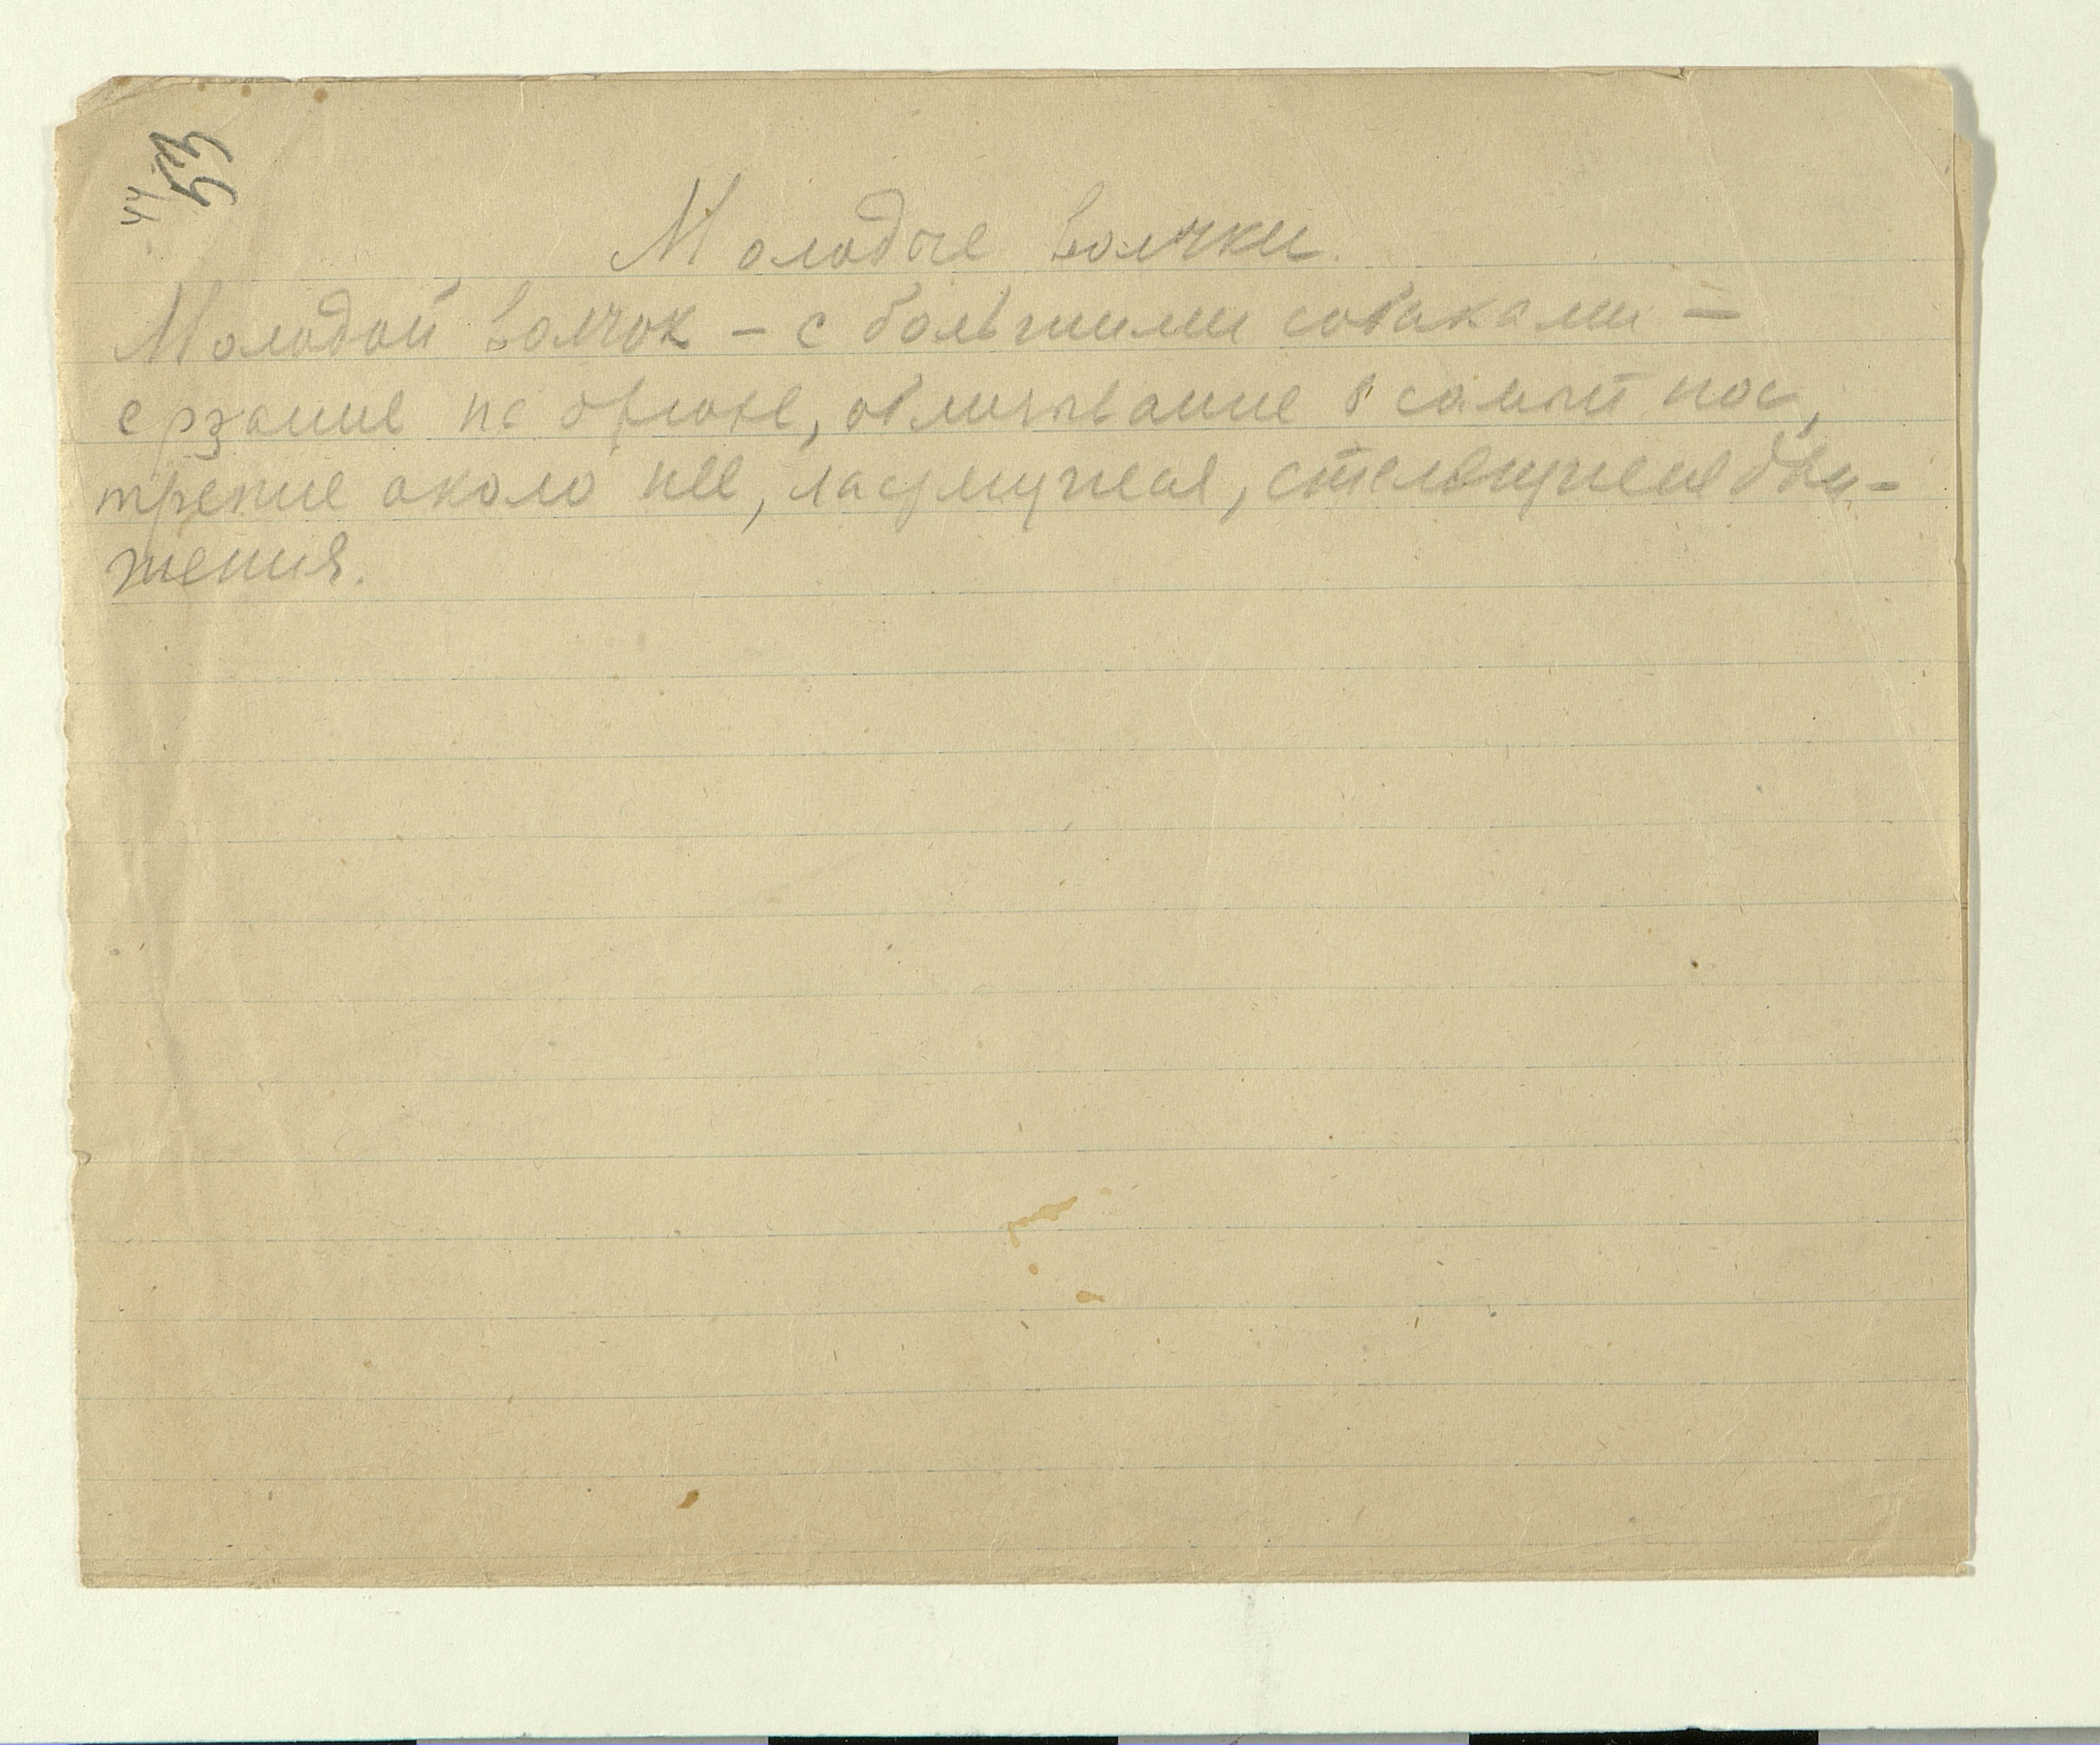 53
44
Молодые волчки.
Молодой волчок – с большими собаками –
ерзание на брюхе, облизывание в самый нос,
трение около нее, ластящиеся, стелящиеся дви-
жения.